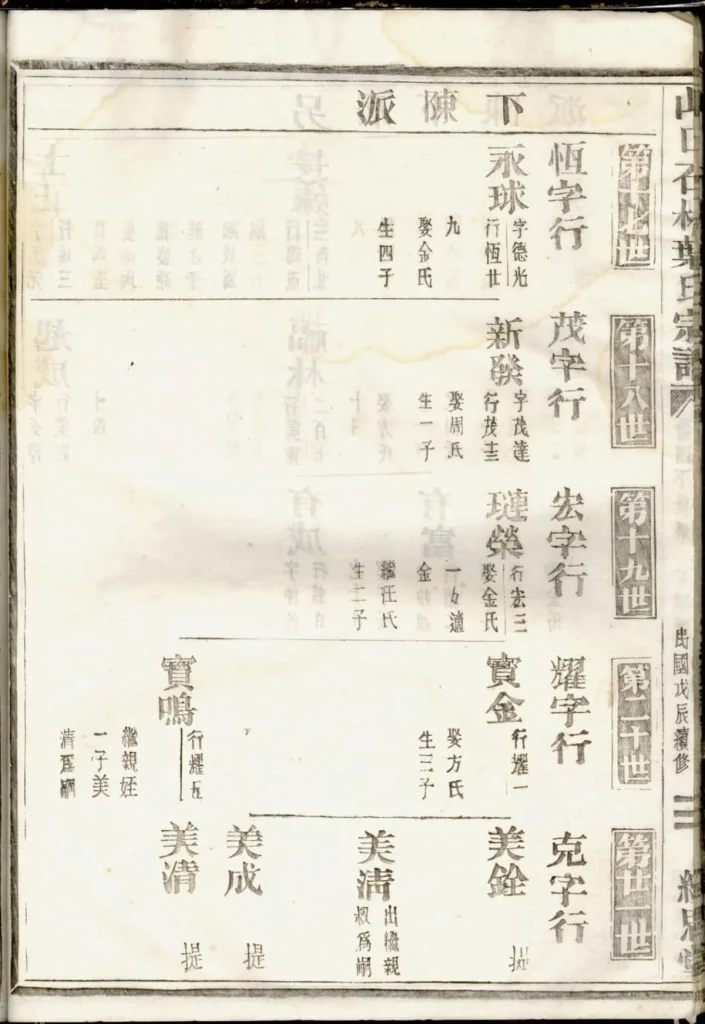 石林葉氏宗譜
民國戊辰續修
三
下陳派
第十七世
恆字行
永球
字德光
行恆廿
九
娶金氏
生四子
第十八世
茂字行
新發
字茂達
行茂
娶周氏
生一子
第十九世
宏字行
璉榮
行宏三
娶金氏
一女適
金
繼汪氏
生二子
第二十世
耀字行
寶金
行耀一
娶方氏
生三子
寶鳴
行耀五
繼親姪
一子美
清爲嗣
第廿一世
克字行
美銓
提
美清
出繼親
叔爲嗣
美成
提
美清
提